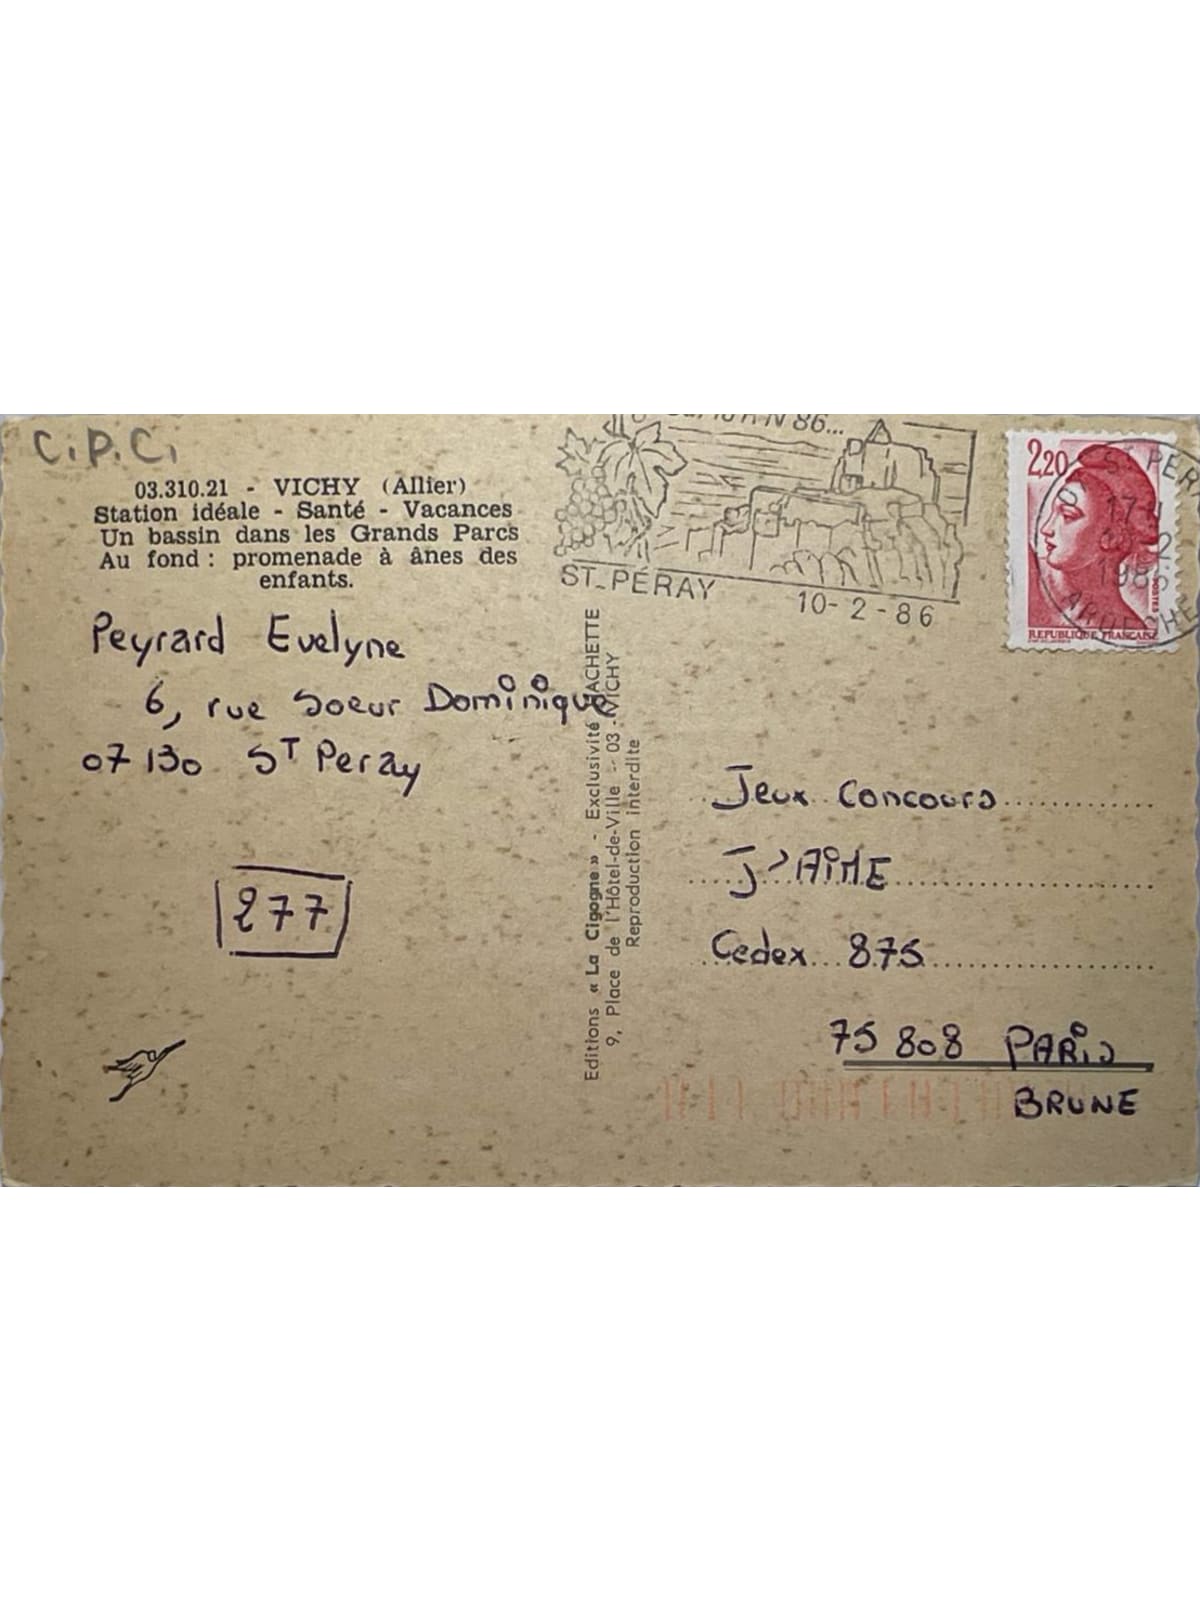 C.P.C.
03.310.21 - VICHY (Allier)
Station idéale - Santé - Vacances
Un bassin dans les Grands Parcs
Au fond : promenade à ânes des
enfants.
Peyrard Evelyne
6, rue Soeur Dominique
07130 ST Peray
277
Editions « La Cigogne » - Exclusivité HACHETTE
9, Place de l'Hôtel-de-Ville - 03 - VICHY
Reproduction interdite
N 86...
ST-PÉRAY
10-2-86
2,20
POSTES
REPUBLIQUE FRANÇAISE
ST PER
17 H
2
1986
ARDECHE
Jeux Concours
J'AiME
Cedex 875
75 808 PARiS
BRUNE